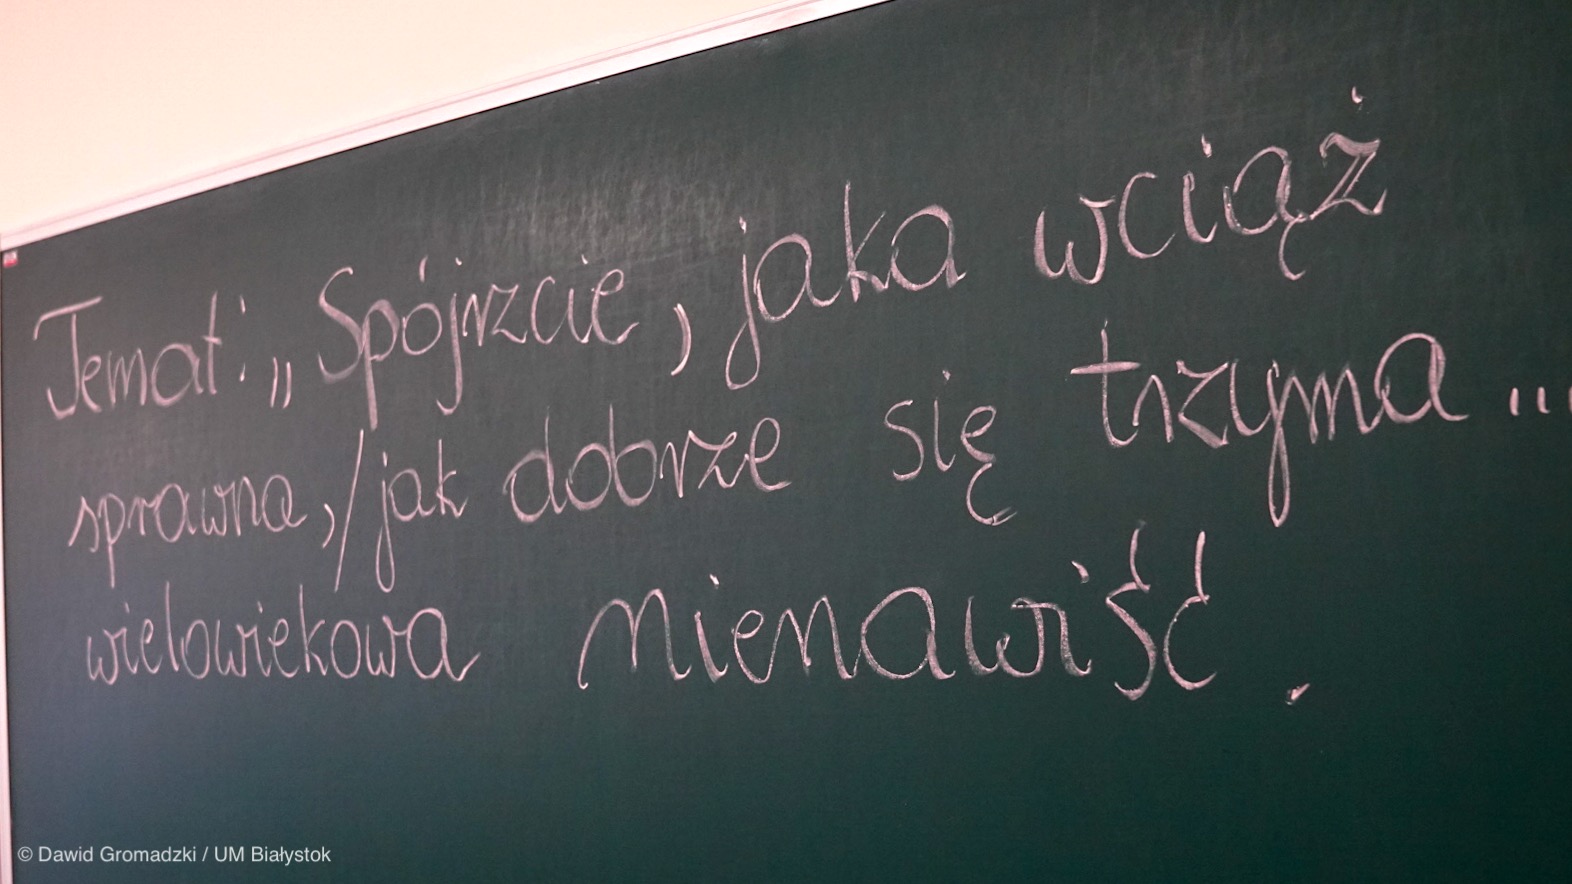 Temat: „Spójrzcie, jaka wciąż
sprawna,/jak dobrze się trzyma...
wielowiekowa nienawiść.
© Dawid Gromadzki / UM Białystok